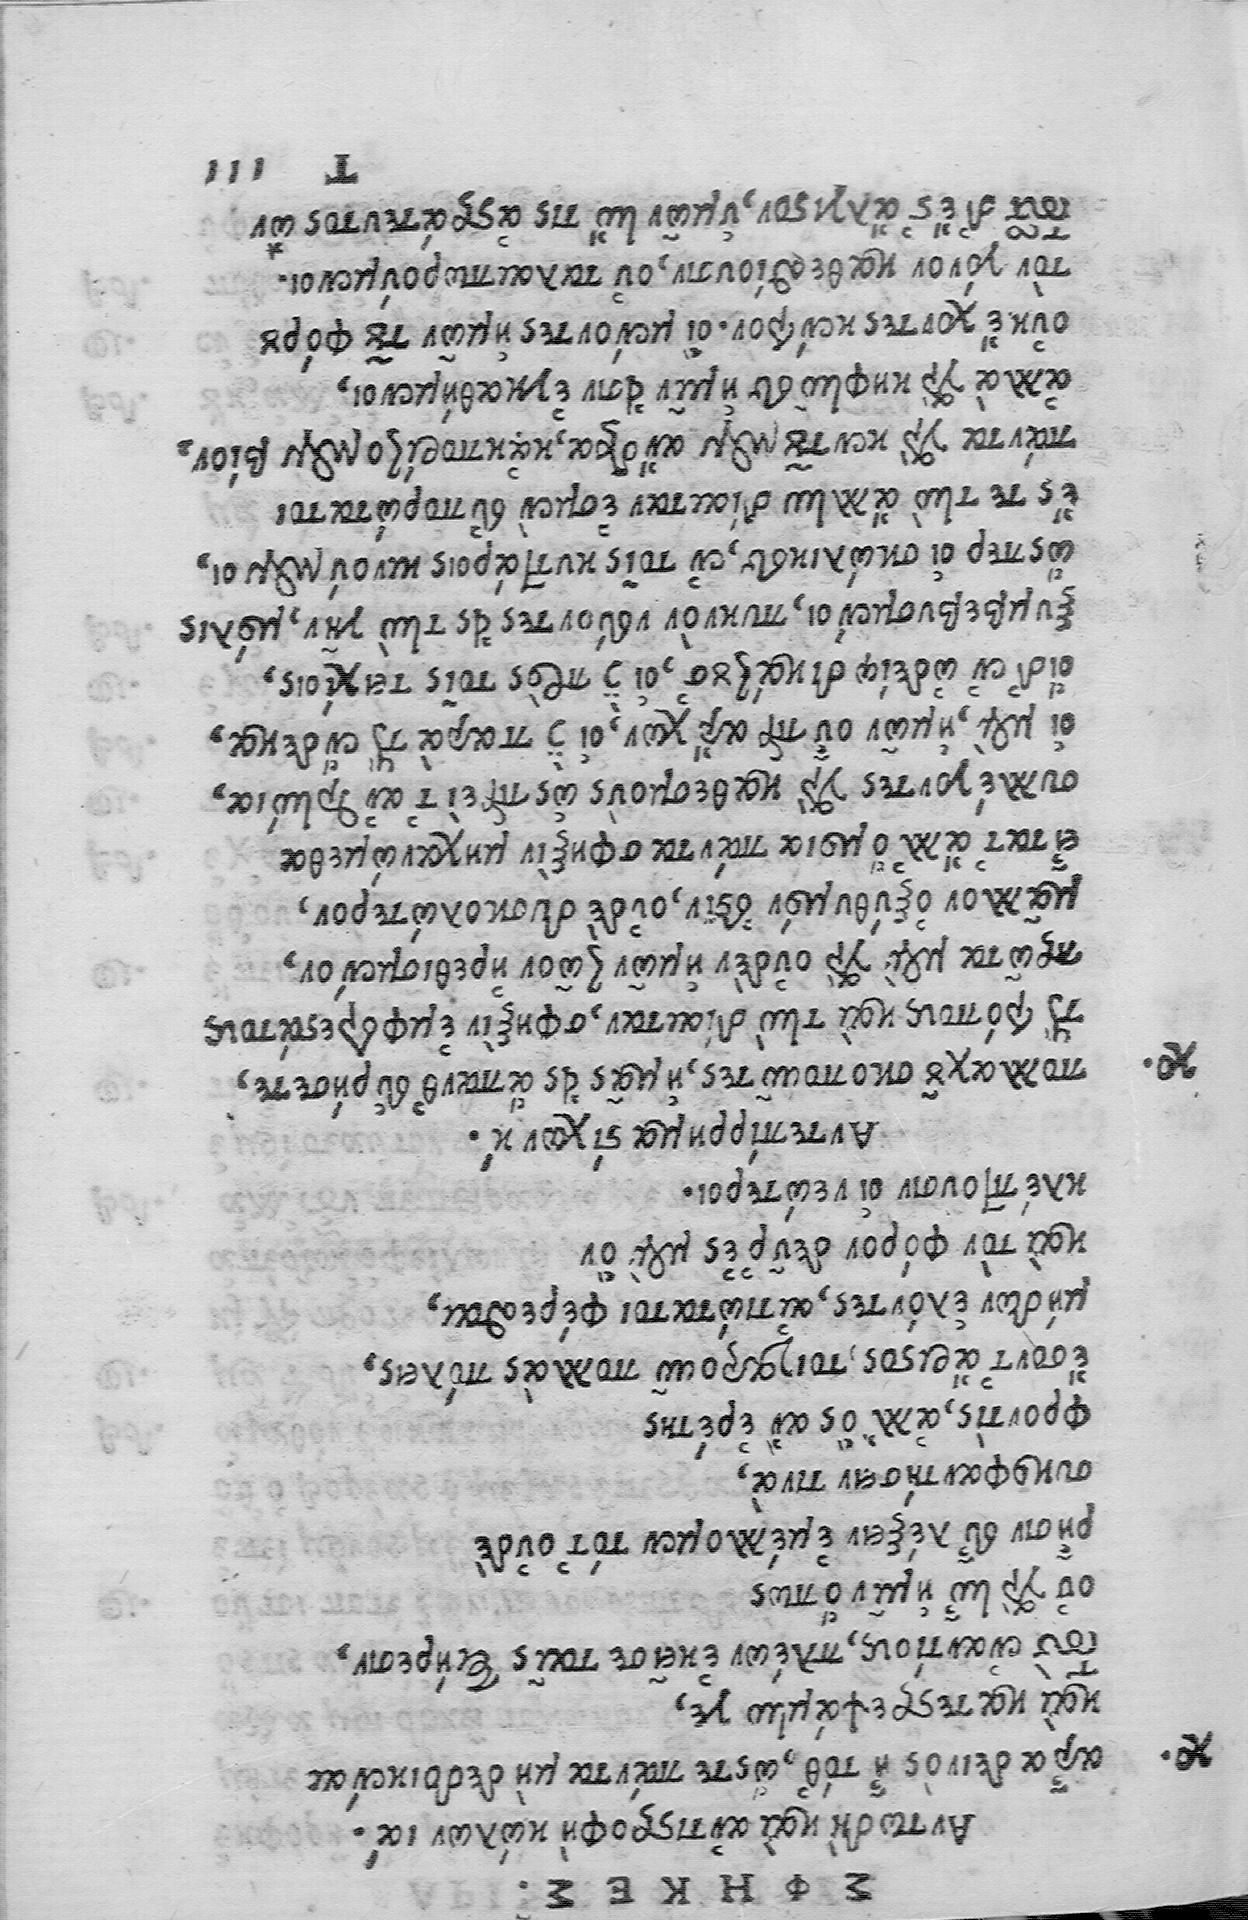 ΣΦΗΚΕΣ.
Ἀντωδὴ καὶ ἀντιστροφὴ κώλων ιά.
χο. ἄρα δεινὸς ἦ τόθ᾽, ὥστε πάντα μὴ δεδοικέναι
καὶ κατεστρεψάμην γε,
Τοὺς ἐναντίους, πλέων ἐκεῖσε ταῖς τριήρεσιν,
οὐ γὰρ ἦν ἡμῖν ὅπως
ῥῆσιν εὖ λέξειν ἐμέλλομεν τότ᾽ οὐδὲ
συκοφαντήσειν τινὰ,
φροντὶς, ἀλλ᾽ ὃς ἂν ἐρέτης
ἔσοιτ᾽ ἄριστος, τοιγαροῦν πολλὰς πόλεις,
μήδων ἑλόντες, αἰτιώτατοι φέρεσθαι,
καὶ τὸν φόρον δεῦρ᾽ ἐς μὲν ὃν
κλέπτουσιν οἱ νεώτεροι.
Ἀντεπίρρημα στίχων κ.
χο. πολλαχοῦ σκοποῦντες, ἡμᾶς εἰς ἅπανθ᾽ εὑρήσετε,
τοὺς τρόπους καὶ τὴν δίαιταν, σφηξὶν ἐμφερεστάτους
πρῶτα μὲν γὰρ οὐδὲν ἡμῶν ζῶον ἠρεθισμένον,
μᾶλλον ὀξύθυμόν ἐστιν, οὐδὲ δυσκολώτερον,
εἶτα τ᾽ ἄλλ᾽ ὅμοια πάντα σφηξὶν μηχανώμεθα
συλλέγοντες γὰρ καθεσμοὺς ὡσπερεὶ τ᾽ ἀνθρήνια,
οἱ μὲν, ἡμῶν οὗπερ ἄρχων, οἱ δὲ παρὰ τοὺς ἕνδεκα,
οἱ δ᾽ ἐν ᾠδείῳ δικάζουσ᾽, οἱ δὲ πρὸς τοῖς τειχίοις,
ξυμβεβυσμένοι, πυκνὸν νεύοντες εἰς τὴν γῆν, μόλις
ὥσπερ οἱ σκώληκες, ἐν τοῖς κυττάροις κινούμενοι,
ἔς τε τὴν ἄλλην δίαιταν ἐσμὲν εὐπορώτατοι
πάντα γὰρ κεντοῦμεν ἄνδρα, κἀκπορίζομεν βίον.
ἀλλὰ γὰρ κηφῆνες ἡμῖν εἰσιν ἐγκαθήμενοι,
οὐκ ἔχοντες κέντρον. οἳ μένοντες ἡμῶν τοῦ φόρου
τὸν γόνον κατεσθίουσιν, οὐ ταλαιπωρούμενοι.
Τοῦτο δ᾽ ἔστ᾽ ἄλγιστον, ἡμῶν ἤν τις ἀστράτευτος ὢν
T iii